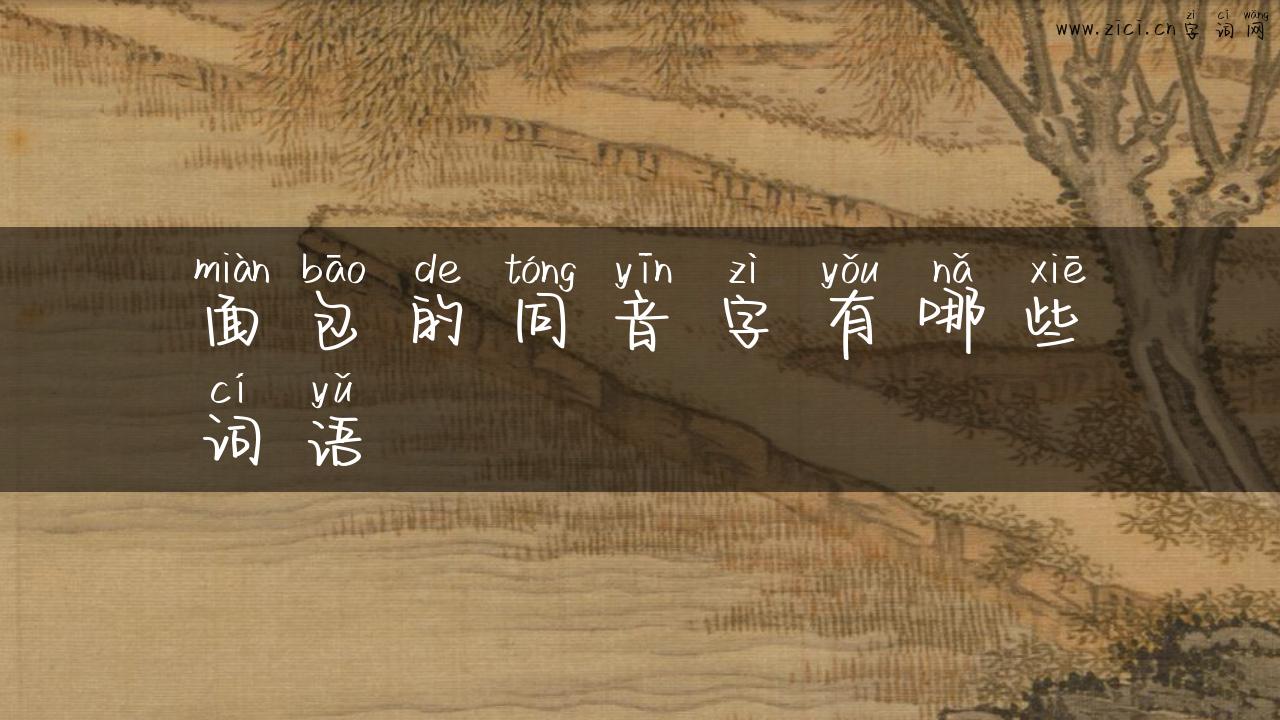 zì cí wǎng
www.zici.cn字词网
miàn bāo de tóng yīn zì yǒu nǎ xiē
面包的同音字有哪些
cí yǔ
词语